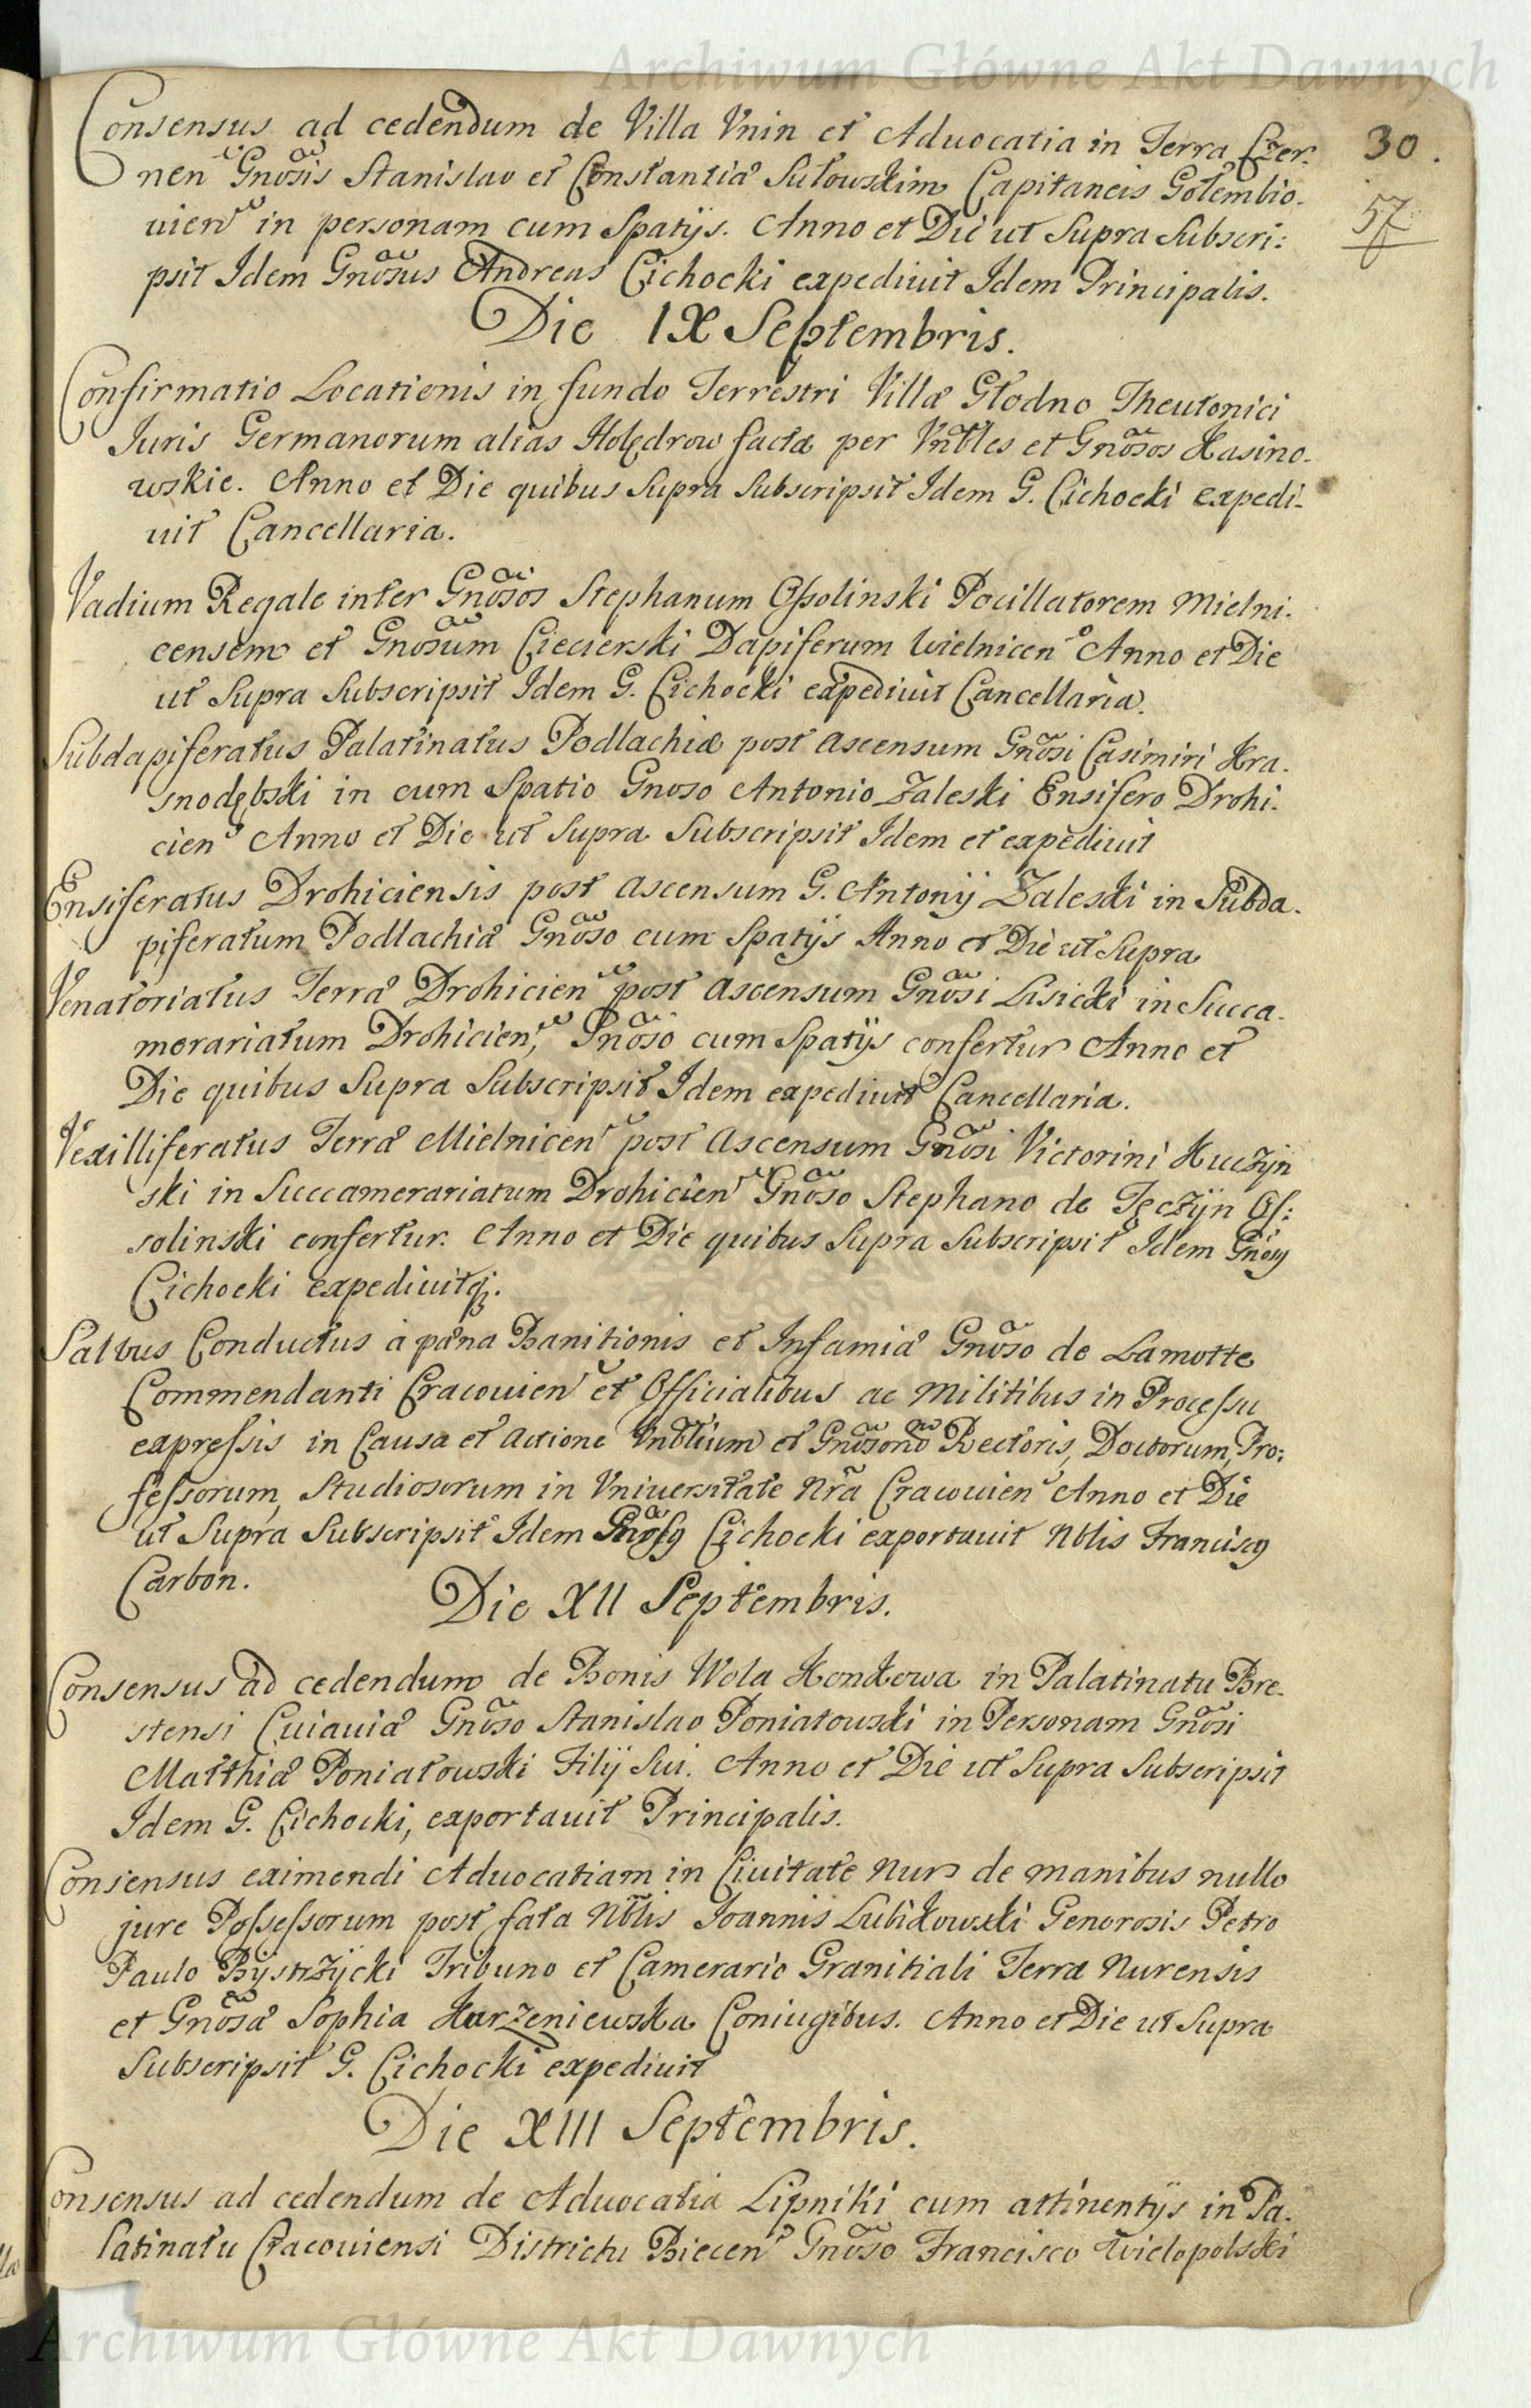 Archiwum Główne Akt Dawnych
30.
57
Consensus ad cedendum de Villa Vnin et Aduocatia in Terra Czer:
nen Gnosis Stanislao et Constantia Sutowskim Capitaneis Golembio-
uien in personam cum Spatijs. Anno et Die ut Supra Subscri:
psit Idem Gnosus Andreas Cichocki expediuit Idem Principalis.
Die IX Septembris.
Confirmatio Locationis in fundo Terrestri Villæ Głodno Theutonici
Iuris Germanorum alias Holędrow facta per Vnbles et Gnosos Kasino-
wskie. Anno et Die quibus Supra Subscripsit Idem G. Cichocki expedi-
uit Cancellaria.
Vadium Regale inter Gnosos Stephanum Ossolinski Pocillatorem Mielni-
censem et Gnosum Ciecierski Dapiferum Mielnicen Anno et Die
ut Supra Subscripsit Idem G. Cichocki expediuit Cancellaria.
Subdapiferatus Palatinatus Podlachiæ post ascensum Gnosi Casimiri Kra-
snodębski in cum Spatio Gnoso Antonio Zaleski Ensifero Drohi-
cien Anno et Die ut Supra Subscripsit Idem et expediuit
Ensiferatus Drohiciensis post ascensum G. Antonij Zaleski in Subda-
piferatum Podlachiæ Gnoso cum Spatijs Anno et Die ut Supra
Venatoriatus Terræ Drohicien post ascensum Gnosi Lisicki in Succa-
merariatum Drohicien, Gnoso cum Spatijs confertur Anno et
Die quibus Supra Subscripsit Idem expediuit Cancellaria.
Vexilliferatus Terræ Mielnicen post ascensum Gnosi Victorini Kuczÿn
ski in Succamerariatum Drohicien Gnoso Stephano de Tęczÿn Os:
solinski confertur. Anno et Die quibus Supra Subscripsit Idem Gnosg
Cichocki expediuitq.
Saluus Conductus a pæna Banitionis et Infamiæ Gnoso de Lamotte
Commendanti Cracouien et Officialibus ac Militibus in Processu
expressis in Causa et actione Vnblium et Gnosono Rectoris, Doctorum, Pro:
fessorum, Studiosorum in Vniuersitate Nra Cracouien Anno et Die
ut Supra Subscripsit Idem Gnosg Cichocki exportauit Nblis Franciscg
Carbon.
Die XII Septembris.
Consensus ad cedendum de Bonis Wola Konkowa in Palatinatu Bre-
stensi Cuiauiæ Gnoso Stanislao Poniatowski in Personam Gnosi
Matthiæ Poniatowski Filij Sui. Anno et Die ut Supra Subscripsit
Idem G. Cichocki, exportauit Principalis.
Consensus eximendi Aduocatiam in Ciuitate Nur de manibus nullo
jure Possessorum post fata Nblis Joannis Lubikowski Generosis Petro
Paulo Bÿstrzÿcki Tribuno et Camerario Granitiali Terræ Nurensis
et Gnosæ Sophia Karzeniewska Coniugibus. Anno et Die ut Supra
Subscripsit G. Cichocki expediuit
Die XIII Septembris.
Consensus ad cedendum de Aduocatia Lipniki cum attinentijs in Pa-
latinatu Cracouiensi Districtu Biecen Gnoso Francisco Wielopolski
Archiwum Główne Akt Dawnych